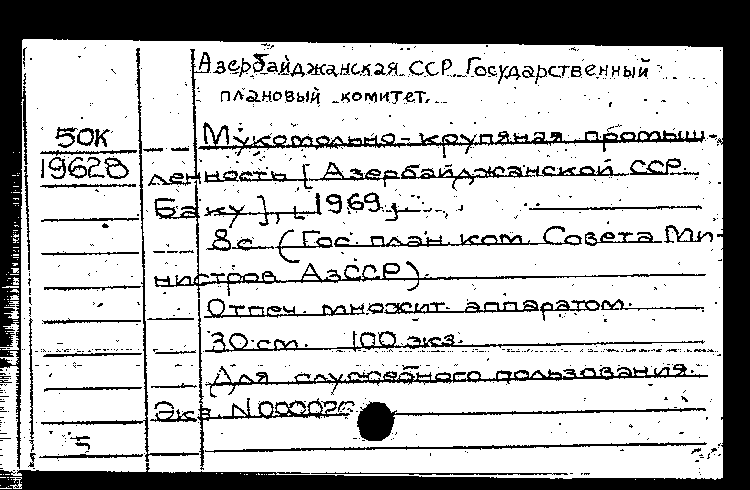 Азербайджанская ССР Государственный
плановый комитет.
50К
Мукомольно-крупяная промыш-
19628
ленность [Азербайджанской ССР.
Баку], [1969].
8с (Гос. план. ком. Совета Ми-
нистров АзССР).
Отпеч. множит. аппаратом.
30 см. 100 экз.
Для служебного пользования.
Экз. N
5